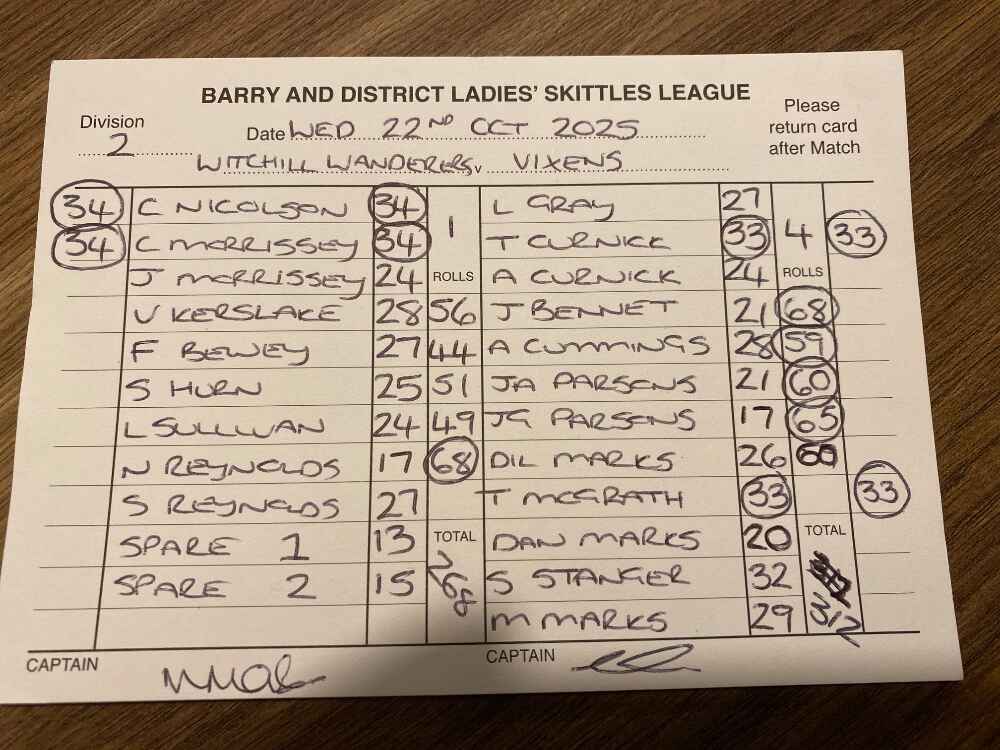 BARRY AND DISTRICT LADIES' SKITTLES LEAGUE
Please return card after Match
Division 2
Date WED 22ND OCT 2025
WITCHILL WANDERERS v VIXENS
34 C NICOLSON 34 1 L GRAY 27 4
34 C MORRISSEY 34 T CURNICK 33 33
J MORRISSEY 24 ROLLS A CURNICK 24 ROLLS
V KERSLAKE 28 56 J BENNET 21 68
F BEWEY 27 44 A CUMMINGS 28 59
S HURN 25 51 JA PARSONS 21 60
L SULLIVAN 24 49 JG PARSONS 17 65
N REYNOLDS 17 68 DIL MARKS 26 60
S REYNOLDS 27 T MCGRATH 33 33
SPARE 1 13 TOTAL DAN MARKS 20 TOTAL
SPARE 2 15 268 S STANGER 32
M MARKS 29 312
CAPTAIN CAPTAIN